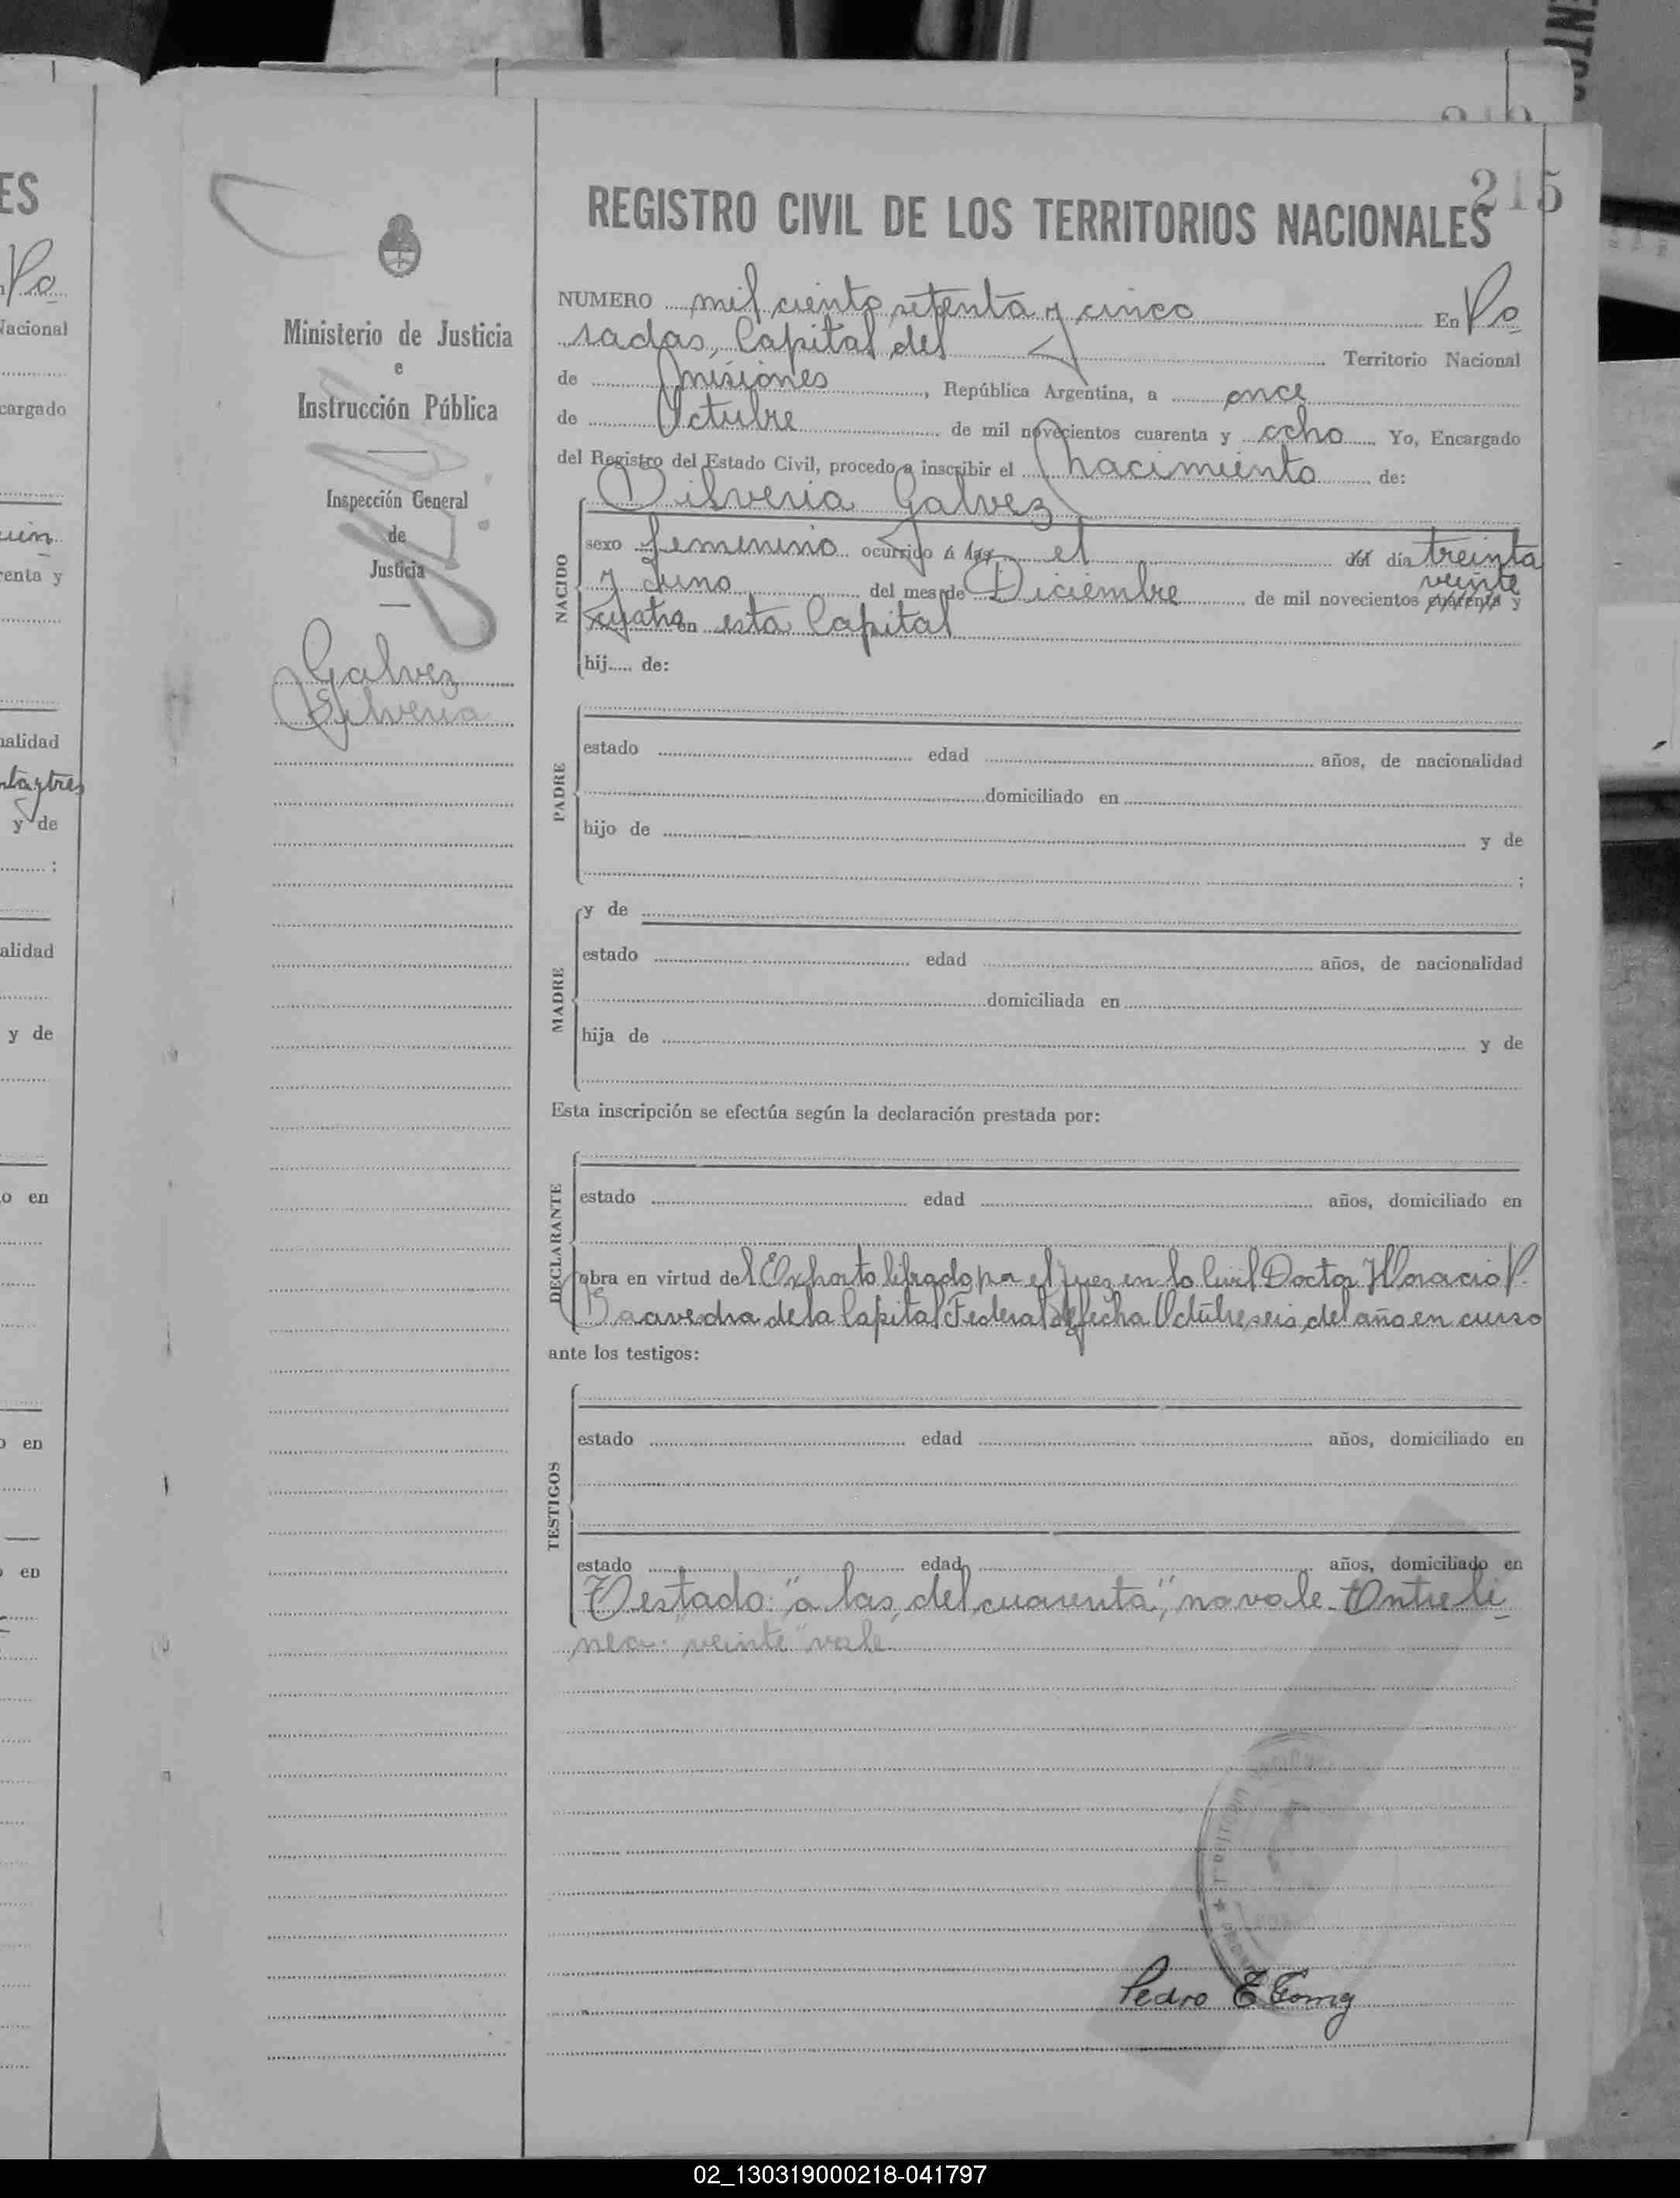 ES
215
REGISTRO CIVIL DE LOS TERRITORIOS NACIONALES
Po
Nacional
cargado
uin
enta y
nalidad
nta y tres
y de
;
alidad
y de
o en
o en
o en
Ministerio de Justicia
e
Instrucción Pública
Inspección General
de
Justicia
Galvez
Silveria
NUMERO mil ciento setenta y cinco En Po
sadas, Capital del Territorio Nacional
de Misiones, República Argentina, a once
de Octubre de mil novecientos cuarenta y ocho Yo, Encargado
del Registro del Estado Civil, procedo a inscribir el nacimiento de:
Silveria Galvez
NACIDO
sexo femenino ocurrido á las el del día treinta
y uno del mes de Diciembre de mil novecientos cuarenta veinte y
cuatro en esta Capital
hij..... de:
PADRE
estado edad años, de nacionalidad
domiciliado en
hijo de y de
;
MADRE
y de
estado edad años, de nacionalidad
domiciliada en
hija de y de
Esta inscripción se efectúa según la declaración prestada por:
DECLARANTE
estado edad años, domiciliado en
obra en virtud del Exhorto librado por el Juez en lo Civil Doctor Horacio P.
Saavedra de la Capital Federal de fecha Octubre seis del año en curso
ante los testigos:
TESTIGOS
estado edad años, domiciliado en
estado edad años, domiciliado en
Testado: "a las, del, cuarenta", no vale. Entre li
nea: "veinte" vale.
Pedro E
02_130319000218-041797